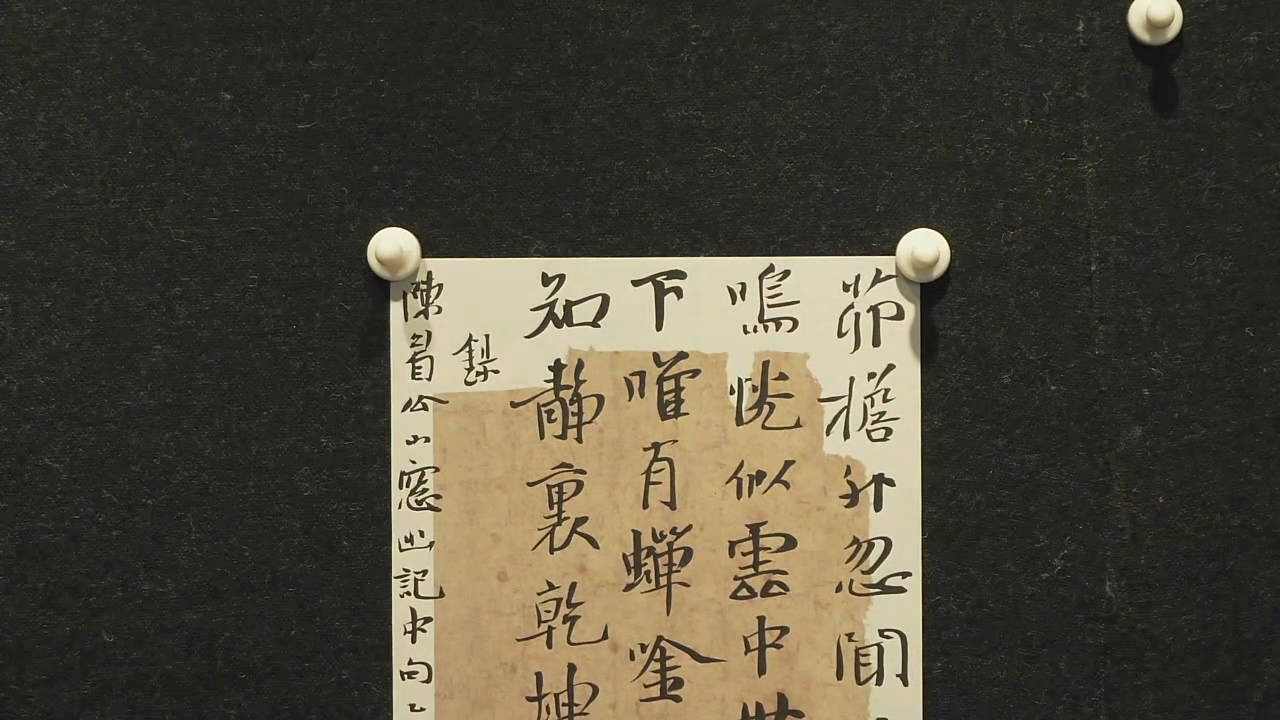 茆檐外忽聞
鳴恍似雲中
下唯有蟬唫
知靜裏乾坤
錄
陳眉公小窓幽記中句乙